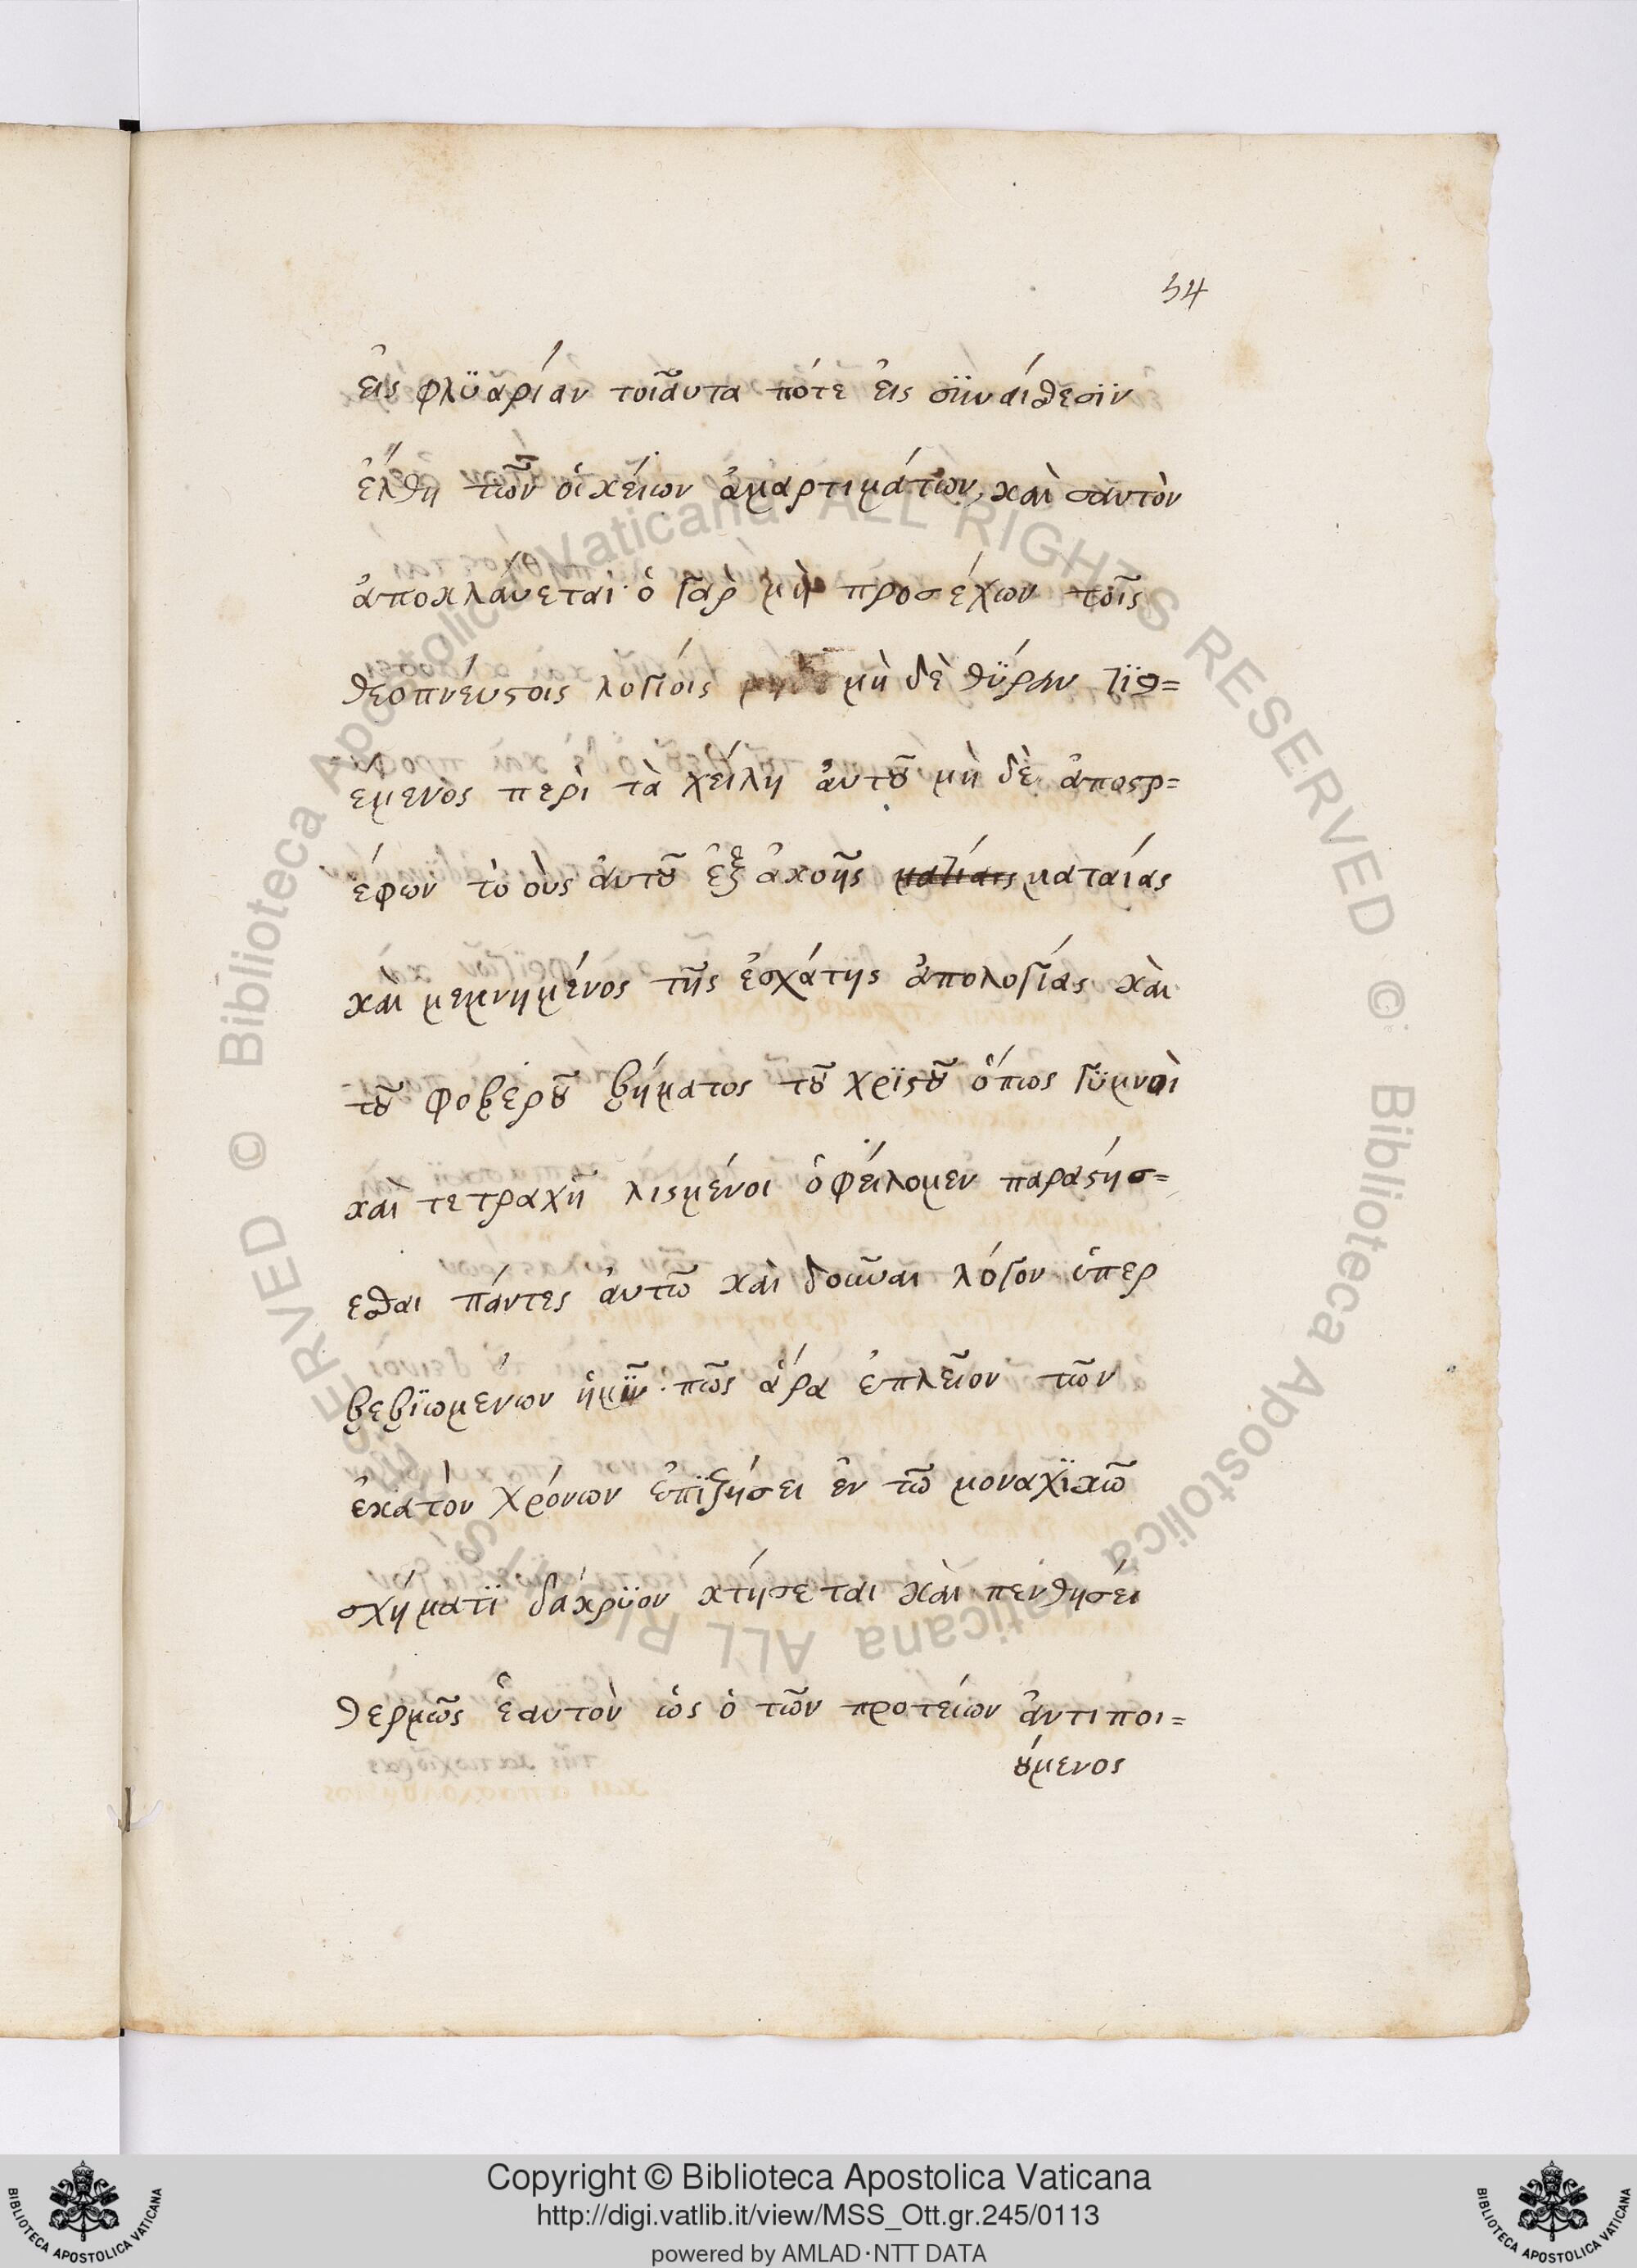 54
εἰς φλϋαρίαν τοιαῦτα πότε εἰς σϋναίθεσϊν
ἔλθη τῶν οἰκείων ἁμαρτιμάτων, καὶ σαυτὸν
ἀποκλάυεται· ὁ γὰρ μὴ προσέχων τοῖς
θεοπνέυστοις λογίοις μὴ δὲ θΰραν τϊθ=
έμενος περὶ τὰ χείλη ἀυτοῦ μὴ δὲ ἀποστρ=
έφων τὸ ὀυς ἀυτοῦ ἐξ ἀκοῆς ματαίας
καὶ μεμνημένος τῆς ἐσχάτης ἀπολογίας καὶ
τοῦ φοβεροῦ βήματος τοῦ χρϊστοῦ ὅπως γϋμνοὶ
καὶ τετραχη λισμένοι ὀφείλομεν παραστήσ=
εσθαι πάντες ἀυτῶ καὶ δοῦναι λόγον ὑπερ
βεβϊωμένων ἡμῖν· πῶς ἄρα ἐπλεῖον τῶν
ἑκατὸν χρόνων ἐπϊζήσει ἐν τῶ μοναχϊκῶ
σχήματϊ δάκρϋον κτήσεται καὶ πενθήσει
θερμῶς ἑαυτὸν ὡς ὁ τῶν προτείων ἀντιποι=
ούμενος
Copyright © Biblioteca Apostolica Vaticana
http://digi.vatlib.it/view/MSS_Ott.gr.245/0113
powered by AMLAD·NTT DATA
BIBLIOTECA APOSTOLICA VATICANA
BIBLIOTECA APOSTOLICA VATICANA